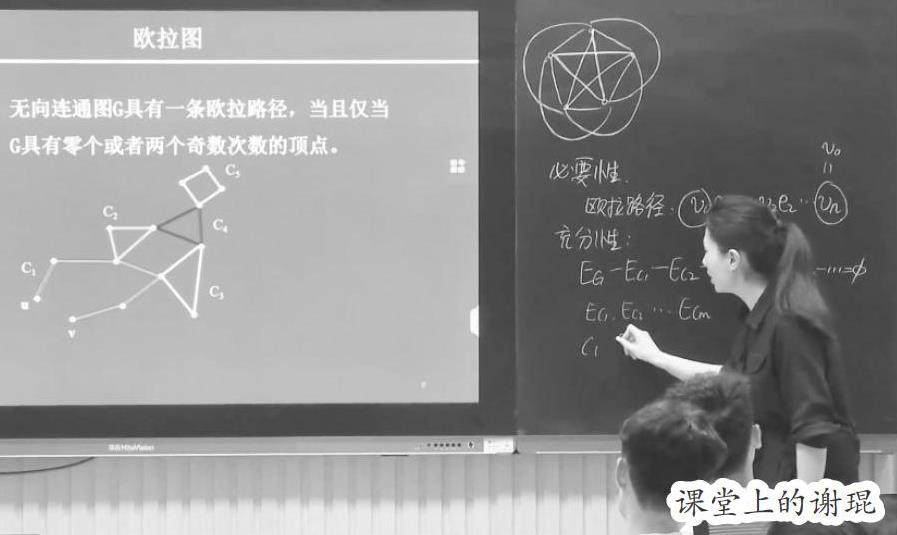 欧拉图
无向连通图G具有一条欧拉路径，当且仅当
G具有零个或者两个奇数次数的顶点。
C₅
C₂
C₄
C₁
C₃
u
v
v₀
必要性.
欧拉路径.
e₂…vₙ
充分性:
E_G-E_C₁-E_C₂-
-…=ϕ
E_C₁.E_C₂…E_Cm
C₁
HiteVision
课堂上的谢琨